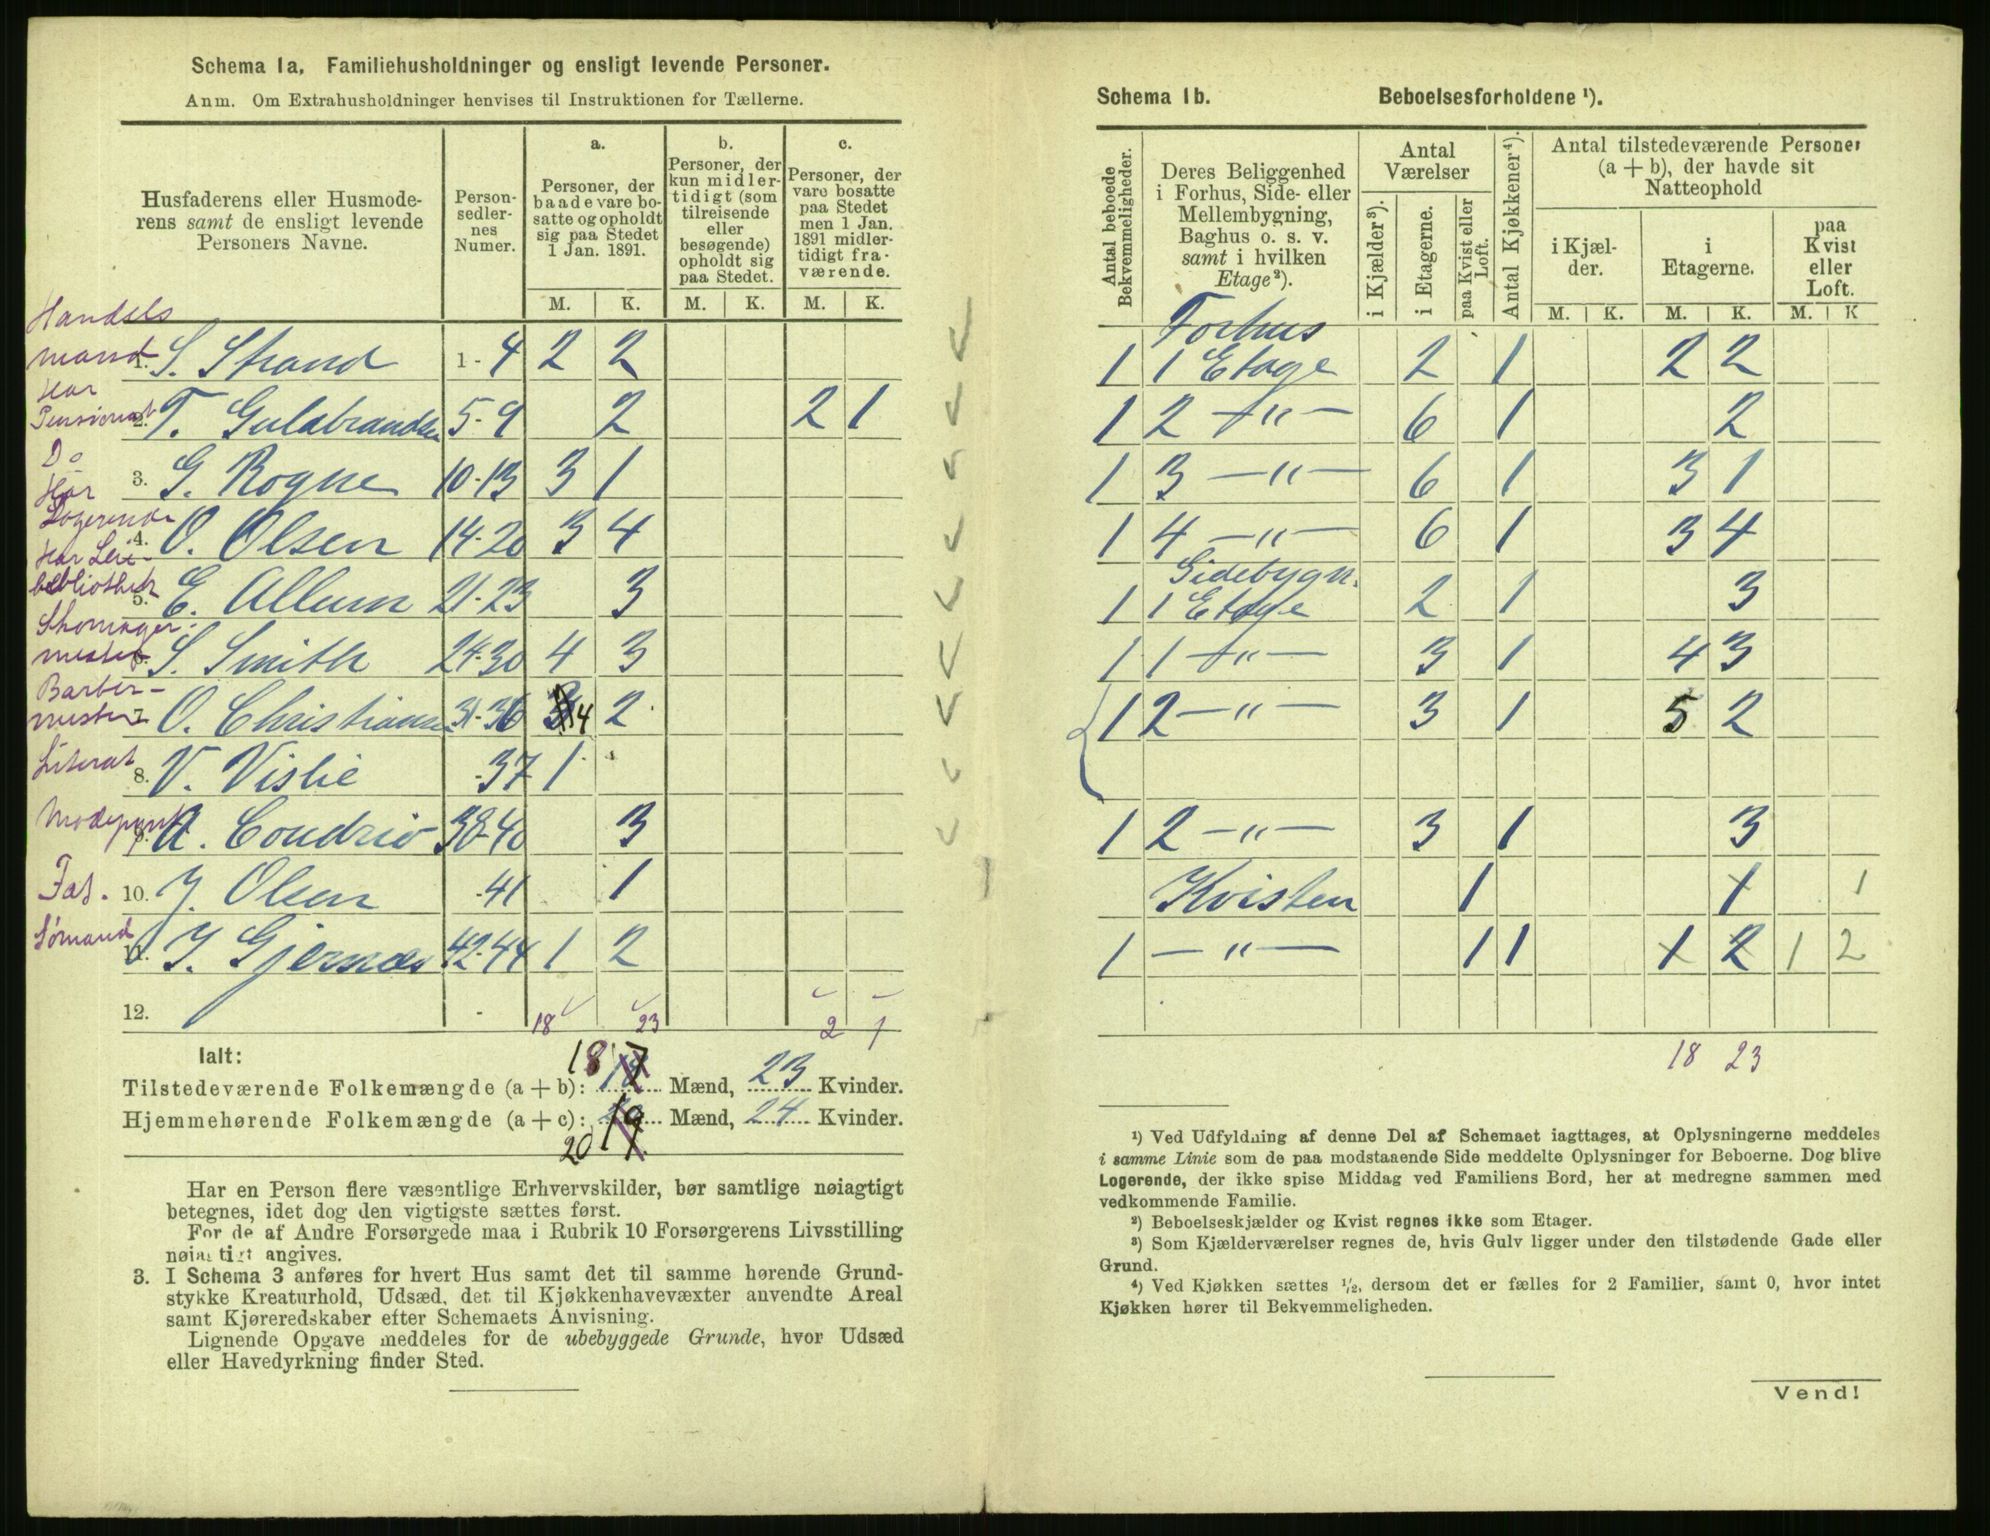 Schema 1a. Familiehusholdninger og ensligt levende Personer.
Anm. Om Extrahusholdninger henvises til Instruktionen for Tællerne.
Husfaderens eller Husmoderens samt de ensligt levende Personers Navne.
Personsedlernes Numer.
a. Personer, der baade vare bosatte og opholdt sig paa Stedet 1 Jan. 1891.
b. Personer, der kun midlertidigt (som tilreisende eller besøgende) opholdt sig paa Stedet.
c. Personer, der vare bosatte paa Stedet men 1 Jan. 1891 midlertidigt fraværende.
M. K. M. K. M. K.
Handelsmand 1. S. Strand 1-4 2 2
Har Pensionat 2. T. Gulabrandsen 5-9 2 2 1
Do 3. G. Rogne 10-13 3 1
Har Logerende 4. O. Olsen 14-20 3 4
Har Leiebibliothek 5. E. Allum 21-23 3
Skomagermester 6. S. Smith 24-30 4 3
Barbermester 7. O. Christiansen 31-36 4 2
Literat 8. V. Vislie -37 1
9. A. Coudrio 38-40 3
Fat. 10. J. Olsen -41 1
Sømand 11. J. Gjernæs 42-44 1 2
12.
18 23 2 1
Ialt:
Tilstedeværende Folkemængde (a + b): 18 Mænd, 23 Kvinder.
Hjemmehørende Folkemængde (a + c): 20 Mænd, 24 Kvinder.
Har en Person flere væsentlige Erhvervskilder, bør samtlige nøiagtigt
betegnes, idet dog den vigtigste sættes først.
For de af Andre Forsørgede maa i Rubrik 10 Forsørgerens Livsstilling
nøiagtigt angives.
3. I Schema 3 anføres for hvert Hus samt det til samme hørende Grund-
stykke Kreaturhold, Udsæd, det til Kjøkkenhavevæxter anvendte Areal
samt Kjøreredskaber efter Schemaets Anvisning.
Lignende Opgave meddeles for de ubebyggede Grunde, hvor Udsæd
eller Havedyrkning finder Sted.
Schema 1b. Beboelsesforholdene ¹).
Antal beboede Bekvemmeligheder.
Deres Beliggenhed i Forhus, Side- eller Mellembygning, Baghus o. s. v. samt i hvilken Etage²).
Antal Værelser
i Kjælder³).
i Etagerne.
paa Kvist eller Loft.
Antal Kjøkkener⁴).
Antal tilstedeværende Personer (a + b), der havde sit Natteophold
i Kjælder.
i Etagerne.
paa Kvist eller Loft.
M. K. M. K. M. K
Forhus
1 1 Etage 2 1 2 2
1 2 —"— 6 1 2
1 3 —"— 6 1 3 1
1 4 —"— 6 1 3 4
Sidebygn.
1 1 Etage 2 1 3
1 1 —"— 3 1 4 3
1 2 —"— 3 1 5 2
1 2 —"— 3 1 3
Kvisten 1 1 1
1 —"— 1 1 1 2 1 2
18 23
¹) Ved Udfyldning af denne Del af Schemaet iagttages, at Oplysningerne meddeles
i samme Linie som de paa modstaaende Side meddelte Oplysninger for Beboerne. Dog blive
Logerende, der ikke spise Middag ved Familiens Bord, her at medregne sammen med
vedkommende Familie.
²) Beboelseskjælder og Kvist regnes ikke som Etager.
³) Som Kjælderværelser regnes de, hvis Gulv ligger under den tilstødende Gade eller
Grund.
⁴) Ved Kjøkken sættes ½, dersom det er fælles for 2 Familier, samt 0, hvor intet
Kjøkken hører til Bekvemmeligheden.
Vend!